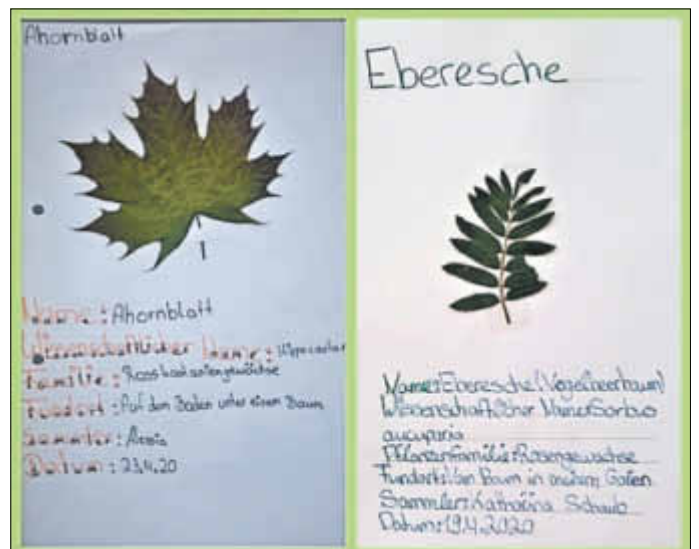 Ahornblatt
Name: Ahornblatt
Wissenschaftlicher Name:
Familie: Rosskastaniengewächse
Fundort: Auf dem Boden unter einem Baum
Sammler:
Datum: 23.4.20
Eberesche
Name: Eberesche (Vogelbeerbaum)
Wissenschaftlicher Name: Sorbus
aucuparia
Pflanzenfamilie: Rosengewächse
Fundort: Am Baum in meinem Garten
Sammler: Katharina Schaub
Datum: 19.4.2020